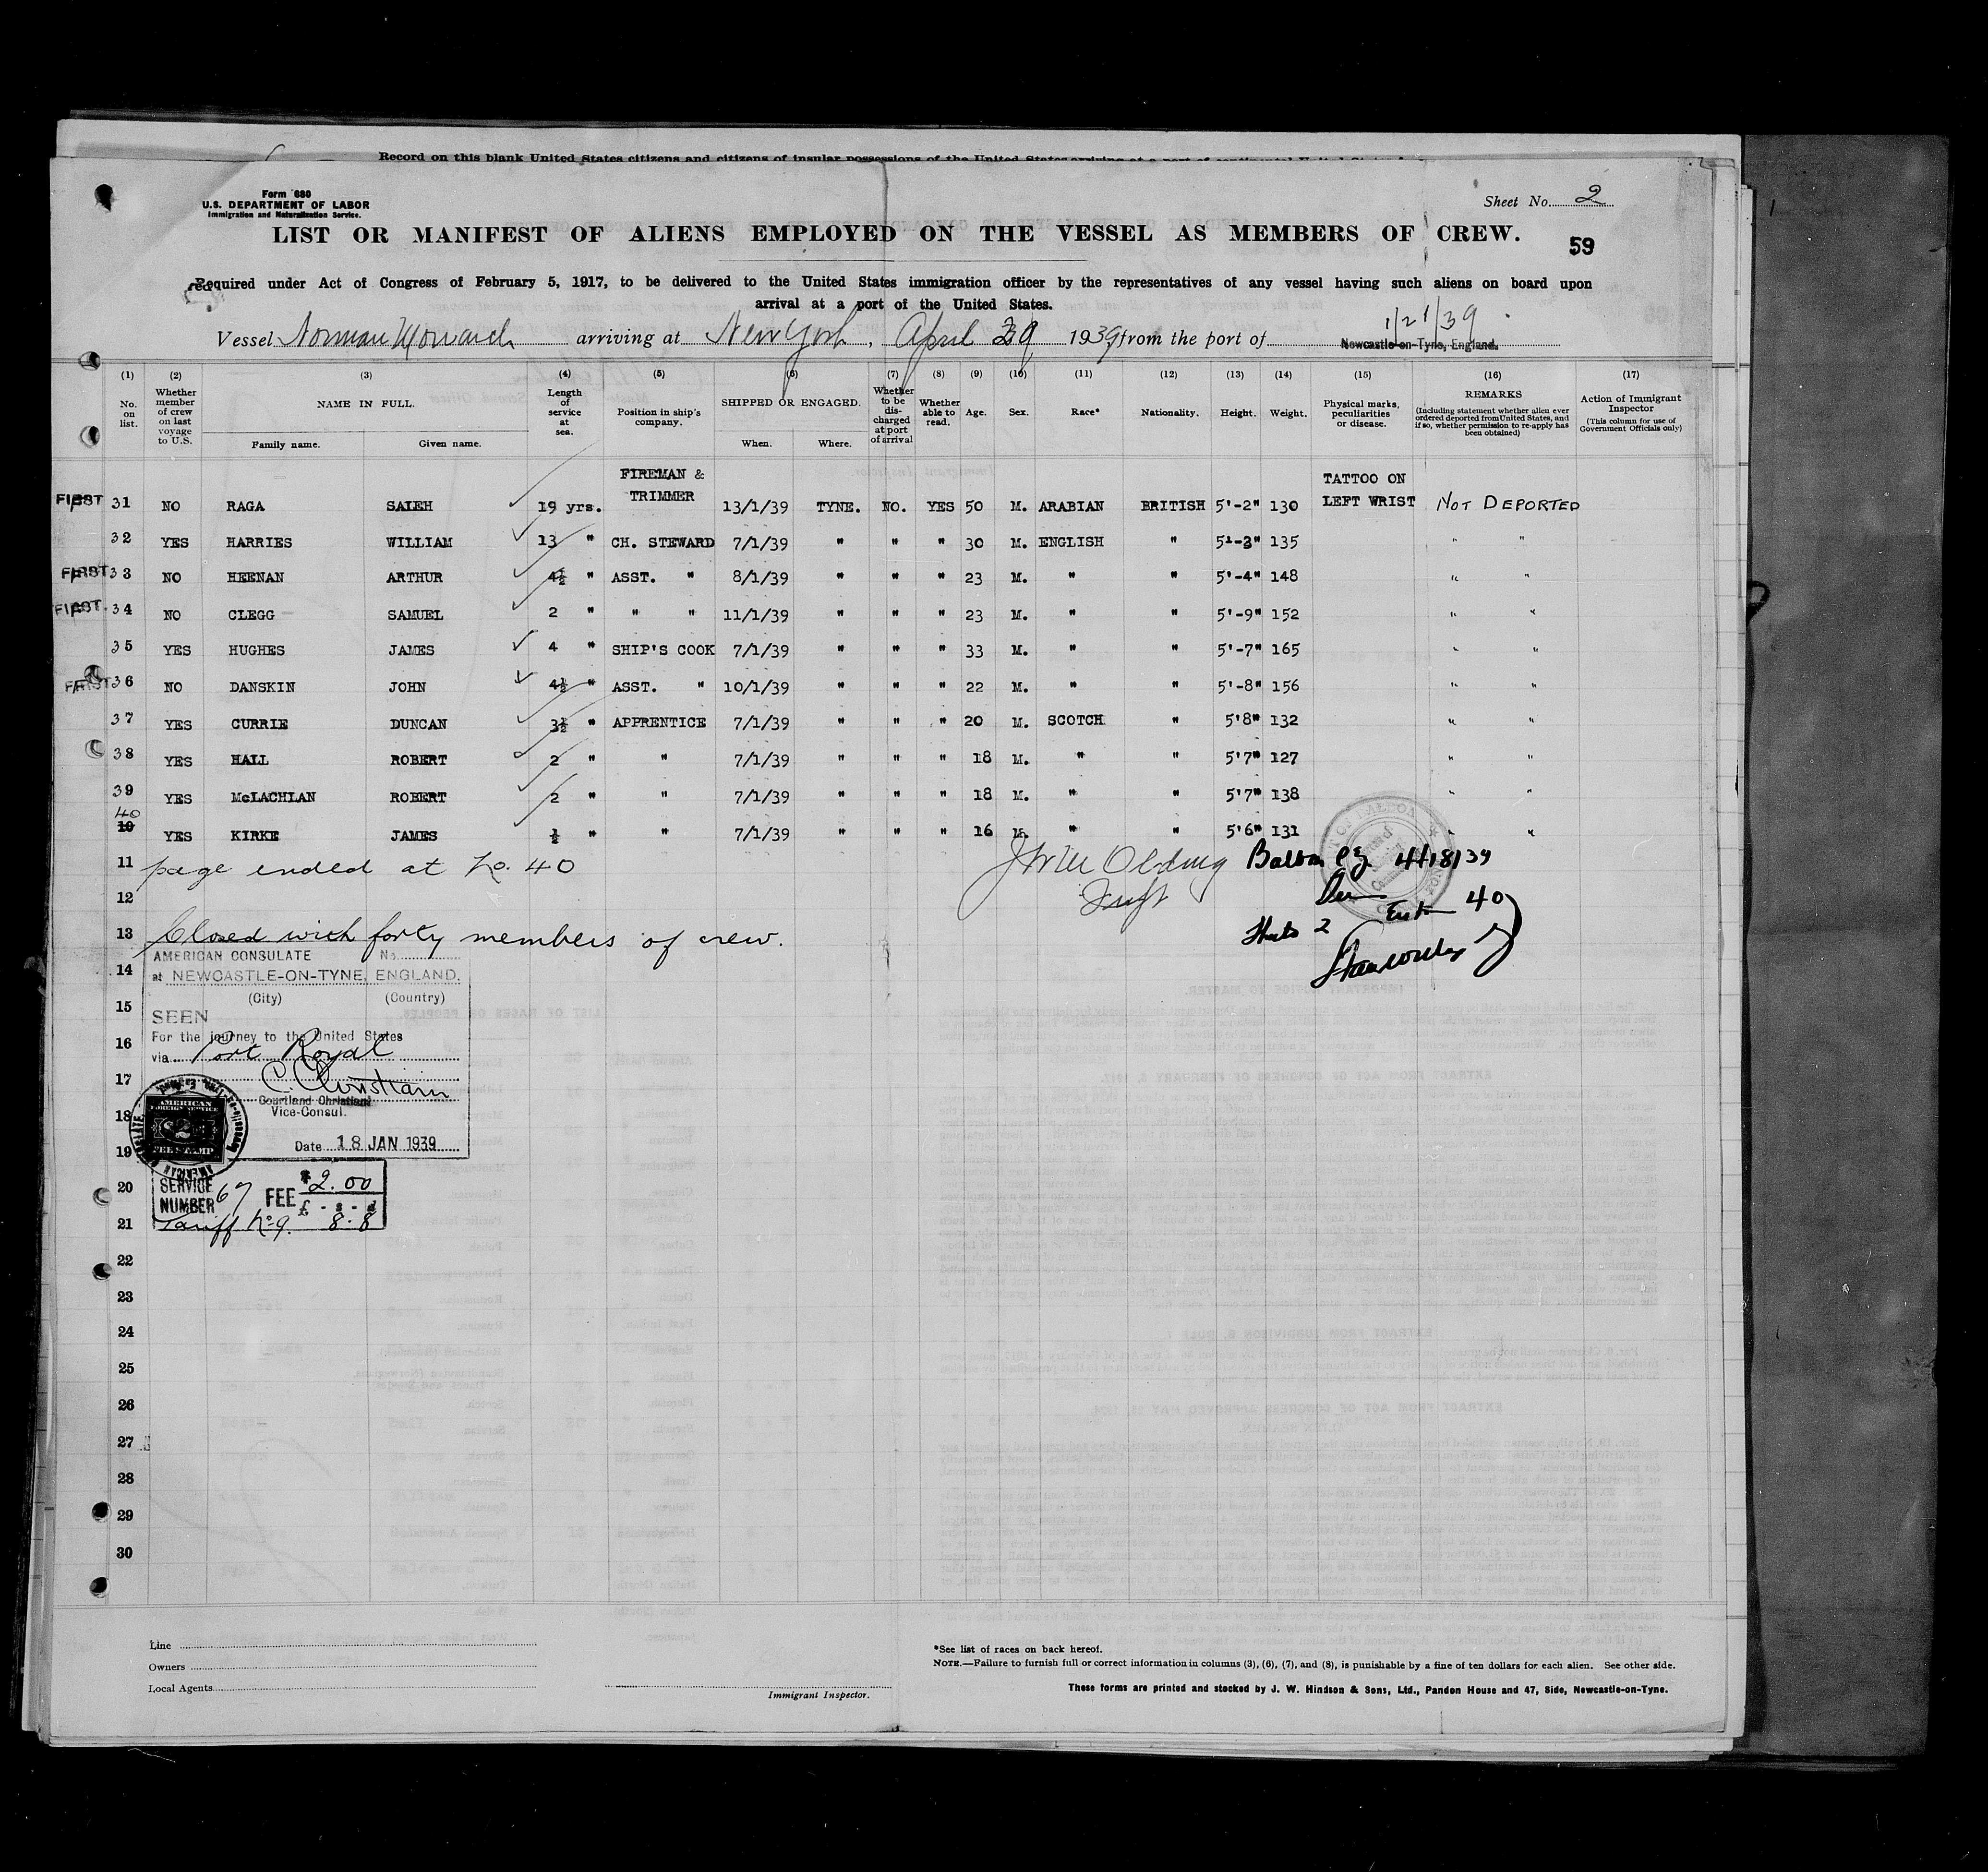 Record on this blank United States citizens and citizens of insular possessions of the United States arriving at a port of continental United States
Form 680
U.S. DEPARTMENT OF LABOR
Immigration and Naturalization Service.
Sheet No. 2
LIST OR MANIFEST OF ALIENS EMPLOYED ON THE VESSEL AS MEMBERS OF CREW.
59
Required under Act of Congress of February 5, 1917, to be delivered to the United States immigration officer by the representatives of any vessel having such aliens on board upon
arrival at a port of the United States.
1/21/39
Vessel Norman Monarch arriving at New York, April 1939, from the port of Newcastle-on-Tyne, England.
(1) (2) (3) (4) (5) (6) (7) (8) (9) (10) (11) (12) (13) (14) (15) (16) (17)
No. on list. Whether member of crew on last voyage to U.S. NAME IN FULL. Family name. Given name. Length of service at sea. Position in ship's company. SHIPPED OR ENGAGED. When. Where. Whether to be discharged at port of arrival Whether able to read. Age. Sex. Race* Nationality. Height. Weight. Physical marks, peculiarities or disease. REMARKS (Including statement whether alien ever ordered deported from United States, and if so, whether permission to re-apply has been obtained) Action of Immigrant Inspector (This column for use of Government Officials only)
FIRST 31 NO RAGA SALEH 19 yrs. FIREMAN & TRIMMER 13/1/39 TYNE. NO. YES 50 M. ARABIAN BRITISH 5'-2" 130 TATTOO ON LEFT WRIST NOT DEPORTED
32 YES HARRIES WILLIAM 13 " CH. STEWARD 7/1/39 " " " 30 M. ENGLISH " 5'-3" 135 " "
FIRST 33 NO HEENAN ARTHUR 4½ " ASST. " 8/1/39 " " " 23 M. " " 5'-4" 148 " "
FIRST. 34 NO CLEGG SAMUEL 2 " " " 11/1/39 " " " 23 M. " " 5'-9" 152 " "
35 YES HUGHES JAMES 4 " SHIP'S COOK 7/1/39 " " " 33 M. " " 5'-7" 165 " "
FIRST 36 NO DANSKIN JOHN 4½ " ASST. " 10/1/39 " " " 22 M. " " 5'-8" 156 " "
37 YES CURRIE DUNCAN 3½ " APPRENTICE 7/1/39 " " " 20 M. SCOTCH " 5'8" 132 " "
38 YES HALL ROBERT 2 " " 7/1/39 " " " 18 M. " " 5'7" 127 " "
39 YES McLACHLAN ROBERT 2 " " 7/1/39 " " " 18 M. " " 5'7" 138 " "
40 10 YES KIRKE JAMES ½ " " 7/1/39 " " " 16 M. " " 5'6" 131 " "
11 page ended at No. 40
Balboa CZ 4/18/39
12
40
Sheets 2
13 Closed with forty members of crew.
AMERICAN CONSULATE No.
14 at NEWCASTLE-ON-TYNE, ENGLAND.
(City) (Country)
15
SEEN
For the journey to the United States
16 via Port Royal
17 C. Christian
Courtland Christiani
Vice-Consul.
18
AMERICAN FOREIGN SERVICE
$2
FEE STAMP
19 Date 18 JAN 1939
20 SERVICE NUMBER 67 FEE $2.00
£ - s - d
21 Tariff No 9. 8.8
22
23
24
25
26
27
28
29
30
Line
Owners
Local Agents
Immigrant Inspector.
*See list of races on back hereof.
NOTE.—Failure to furnish full or correct information in columns (3), (6), (7), and (8), is punishable by a fine of ten dollars for each alien. See other side.
These forms are printed and stocked by J. W. Hindson & Sons, Ltd., Pandon House and 47, Side, Newcastle-on-Tyne.